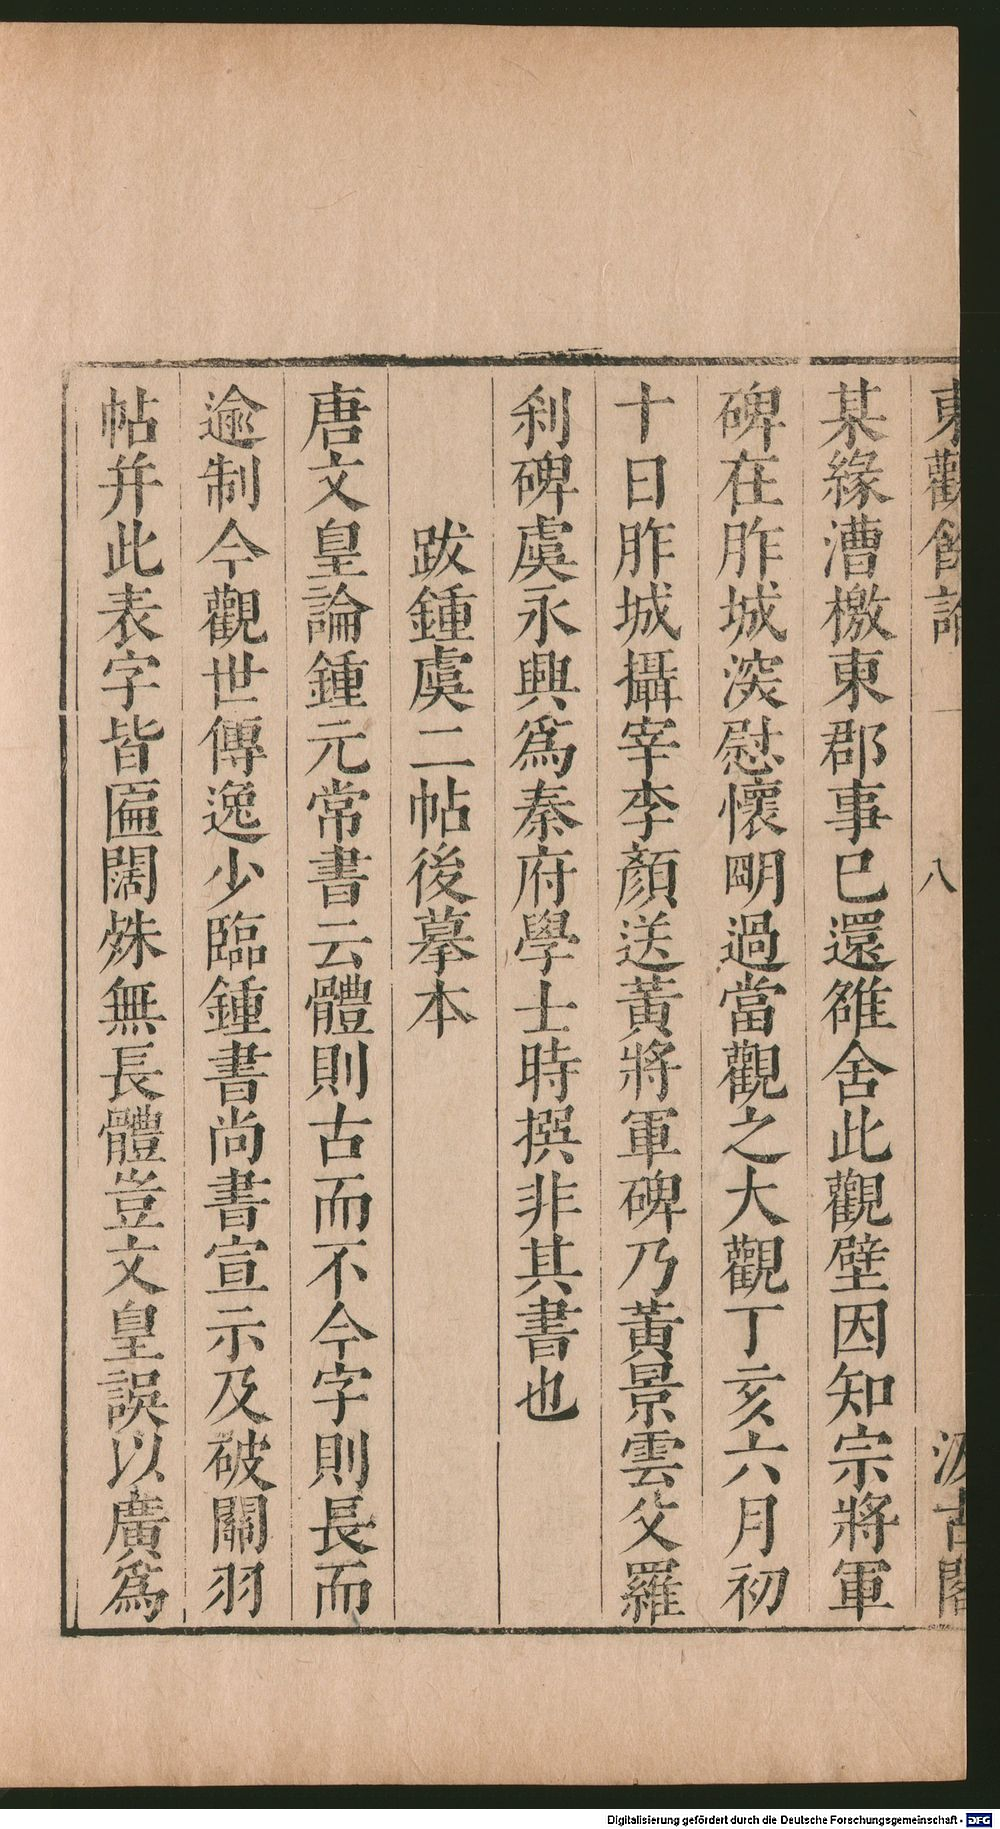 東觀餘論
八
汲古閣
某緣漕檄東郡事已還雒舍此觀壁因知宗將軍
碑在胙城深慰懷朙過當觀之大觀丁亥六月初
十日胙城攝宰李顏送黃將軍碑乃黃景雲父羅
刹碑虞永興爲秦府學士時撰非其書也
跋鍾虞二帖後摹本
唐文皇論鍾元常書云體則古而不今字則長而
逾制今觀世傳逸少臨鍾書尚書宣示及破關羽
帖并此表字皆匾闊殊無長體豈文皇誤以廣爲
Digitalisierung gefördert durch die Deutsche Forschungsgemeinschaft - DFG